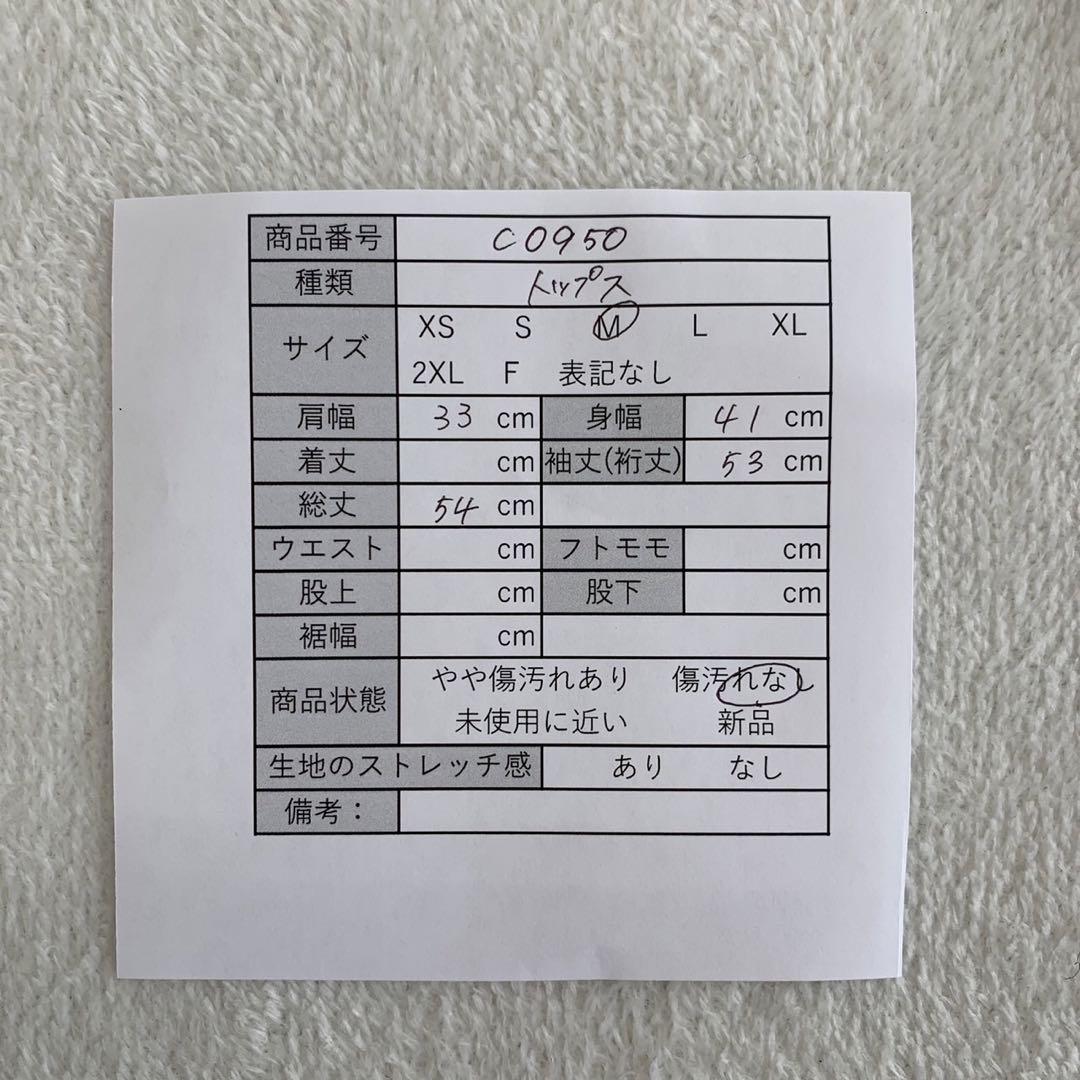 商品番号 C0950
種類 トップス
サイズ XS S M L XL
2XL F 表記なし
肩幅 33 cm 身幅 41 cm
着丈 cm 袖丈(裄丈) 53 cm
総丈 54 cm
ウエスト cm フトモモ cm
股上 cm 股下 cm
裾幅 cm
商品状態 やや傷汚れあり 傷汚れなし
未使用に近い 新品
生地のストレッチ感 あり なし
備考：